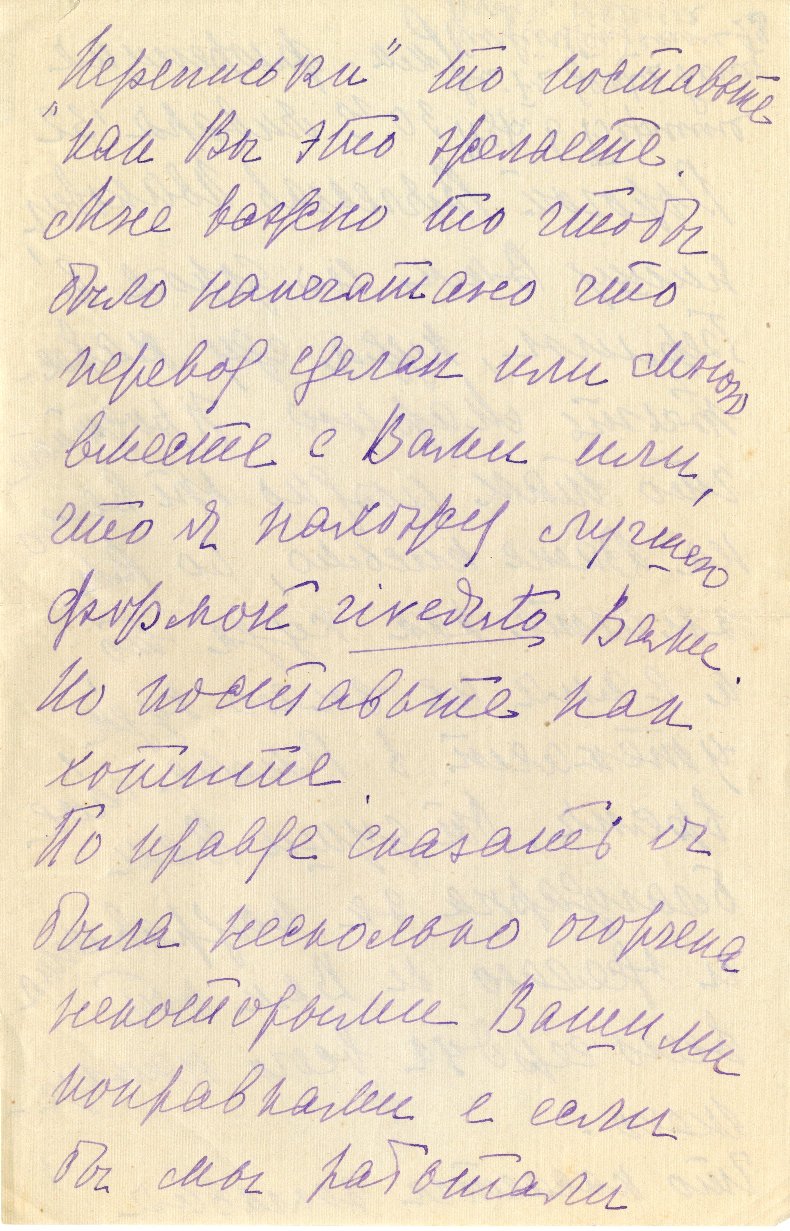 Переписки" то поставьте
"как Вы это желаете.
Мне важно то чтобы
было напечатано что
перевод сделан или мною
вместе с Вами или,
что я нахожу лучшею
формой Вами.
Но поставьте как
хотите.
По правде сказать я
была несколько огорчена
некоторыми Вашими
поправками е если
бы мы работали